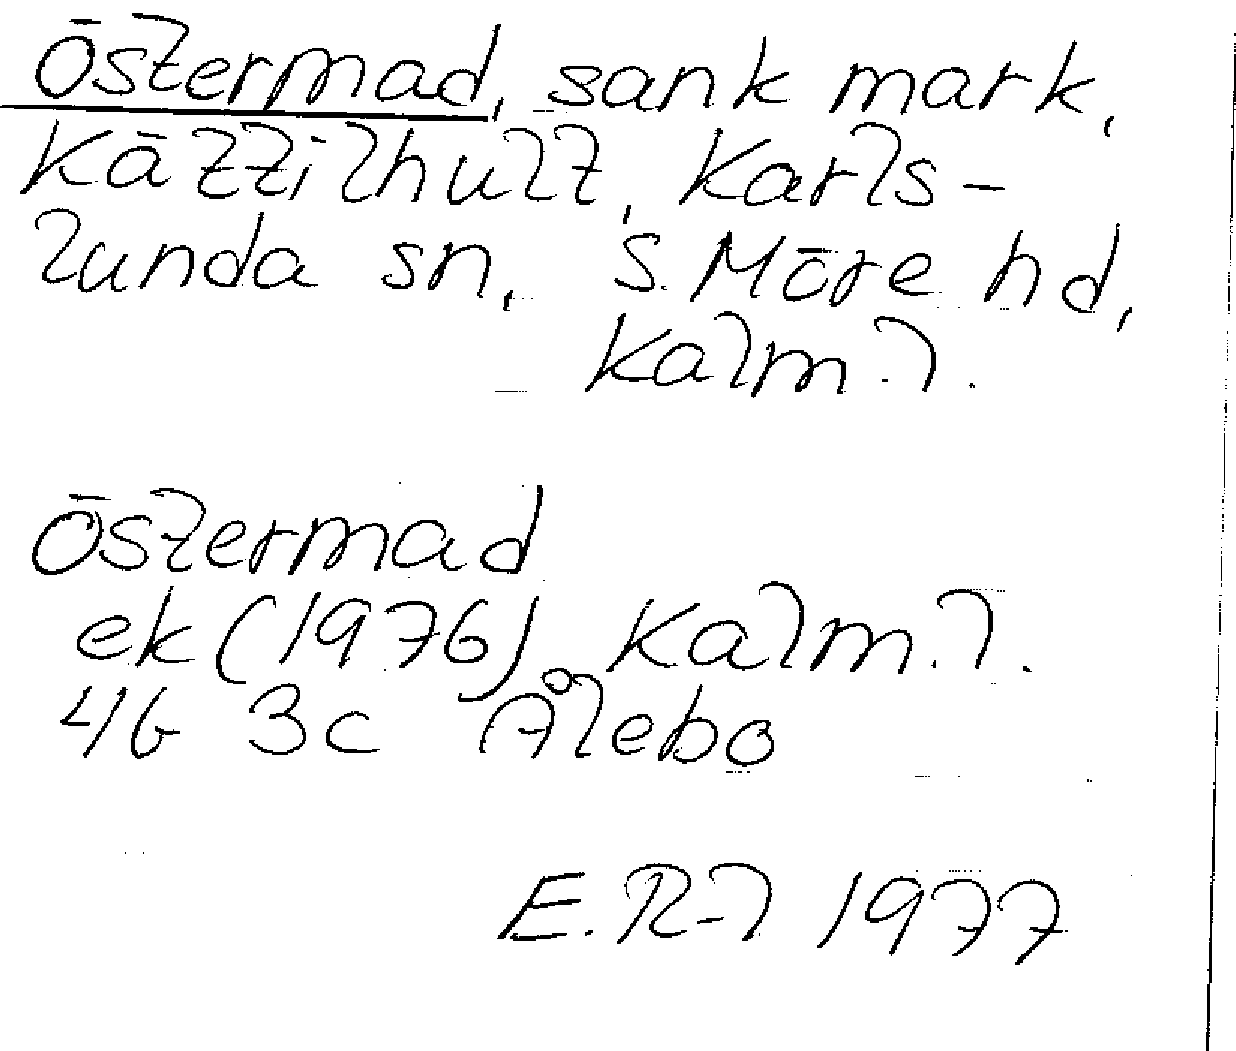 Östermad, sank mark,
Kättilhult, Karls-
lunda sn, S. Möre hd,
Kalm. l.
Östermad
ek (1976) Kalm. l.
4G 3c Ålebo
E. R-l 1977